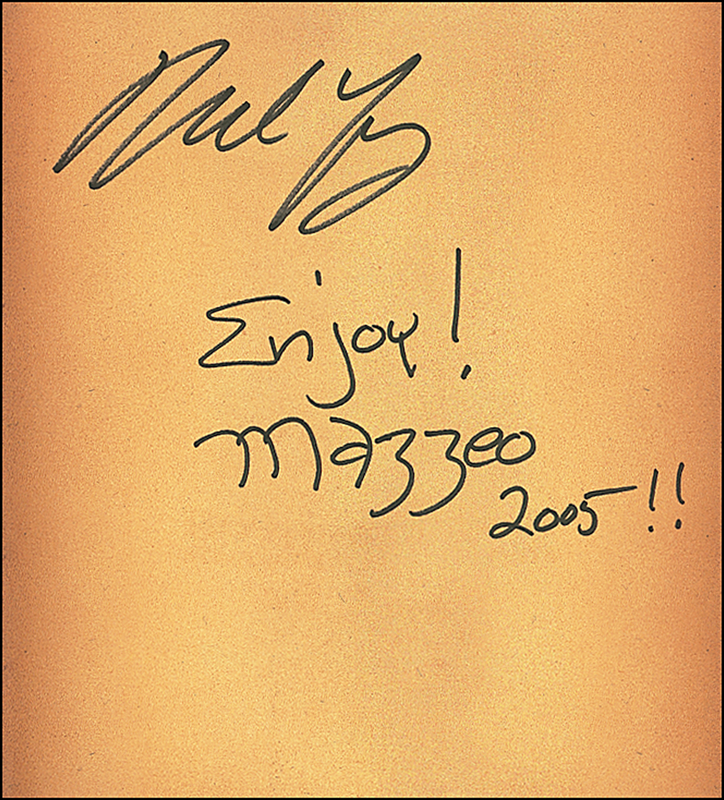 Neil Young
Enjoy!
Mazzeo
2005!!